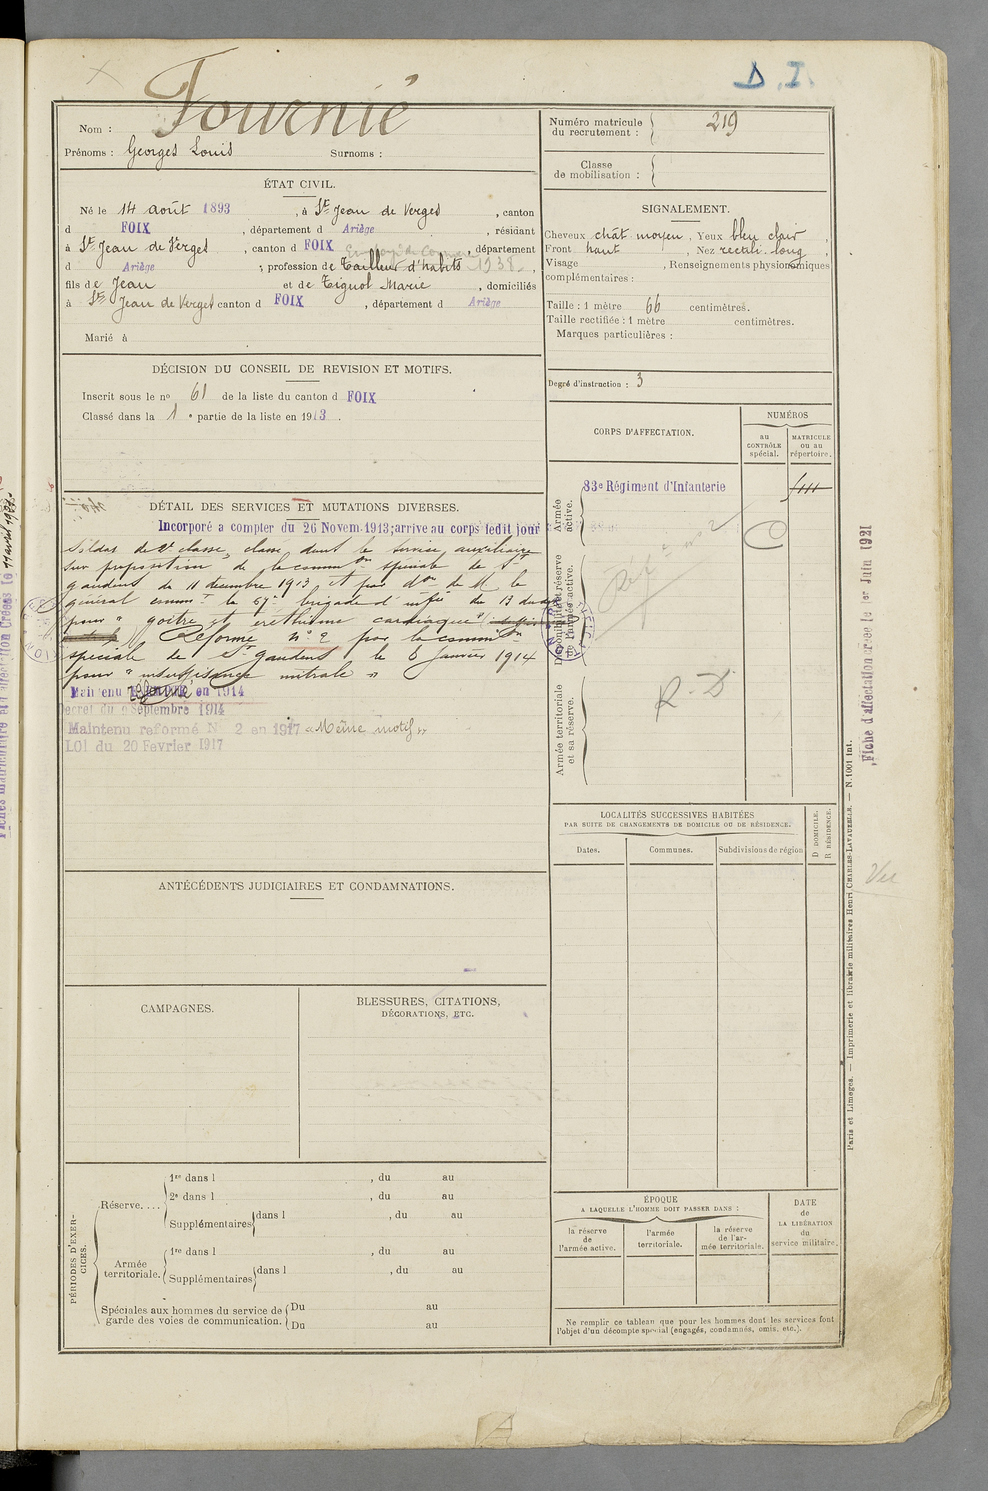 D. I.
Fournié
Nom :
Prénoms : Georges Louis Surnoms :
ÉTAT CIVIL.
Né le 14 août 1893, à St Jean de Verges, canton
d FOIX, département d Ariège, résidant
à St Jean de Verges, canton d FOIX, département
d Ariège ; profession de tailleur d'habits 1938,
fils de Jean et de Tignol Marie, domiciliés
à St Jean de Verges canton d FOIX, département d Ariège
Marié à
DÉCISION DU CONSEIL DE REVISION ET MOTIFS.
Inscrit sous le no 61 de la liste du canton d FOIX
Classé dans la 1 e partie de la liste en 1913.
DÉTAIL DES SERVICES ET MUTATIONS DIVERSES.
Incorporé a compter du 26 Novem. 1913; arrive au corps ledit jour
Soldat de 2e classe, classé dans le service auxiliaire
sur proposition de la common spéciale de St
gaudens du 11 décembre 1913 et par don de M le
général commt la 67e brigade d'infie du 13 dudit
pour "goitre et éréthisme cardiaque"
Réformé n° 2 par la common
spéciale de St Gaudens le 6 Janvier 1914
pour "insuffisance mitrale"
Maintenu Réformé en 1914
Decret du 9 Septembre 1914
Maintenu reformé N° 2 en 1917 "Même motif"
LOI du 20 Fevrier 1917
ANTÉCÉDENTS JUDICIAIRES ET CONDAMNATIONS.
CAMPAGNES.
BLESSURES, CITATIONS,
DÉCORATIONS, ETC.
PÉRIODES D'EXERCICES.
Réserve....
1re dans l , du au
2e dans l , du au
Supplémentaires dans l , du au
Armée territoriale.
1re dans l , du au
Supplémentaires dans l , du au
Spéciales aux hommes du service de garde des voies de communication.
Du au
Du au
Numéro matricule du recrutement : 219
Classe de mobilisation :
SIGNALEMENT.
Cheveux chât moyen, Yeux bleu clair,
Front haut, Nez rectili. long,
Visage , Renseignements physionomiques
complémentaires :
Taille : 1 mètre 66 centimètres.
Taille rectifiée : 1 mètre centimètres.
Marques particulières :
Degré d'instruction : 3
CORPS D'AFFECTATION.
NUMÉROS
au CONTRÔLE spécial.
MATRICULE ou au répertoire.
Armée active.
83e Régiment d'Infanterie
Disponibilité et réserve de l'armée active.
Réf é no 2
Armée territoriale et sa réserve.
R. D
LOCALITÉS SUCCESSIVES HABITÉES
PAR SUITE DE CHANGEMENTS DE DOMICILE OU DE RÉSIDENCE.
Dates.
Communes.
Subdivisions de région
D DOMICILE.
R RÉSIDENCE.
ÉPOQUE
A LAQUELLE L'HOMME DOIT PASSER DANS :
la réserve de l'armée active.
l'armée territoriale.
la réserve de l'armée territoriale.
DATE de LA LIBÉRATION du service militaire.
Ne remplir ce tableau que pour les hommes dont les services font
l'objet d'un décompte spécial (engagés, condamnés, omis, etc.).
Paris et Limoges. — Imprimerie et librairie militaires Henri CHARLES-LAVAUZELLE. — N. 1001 int.
Fiche d'affectation créée le 1er Juin 1921
Vu